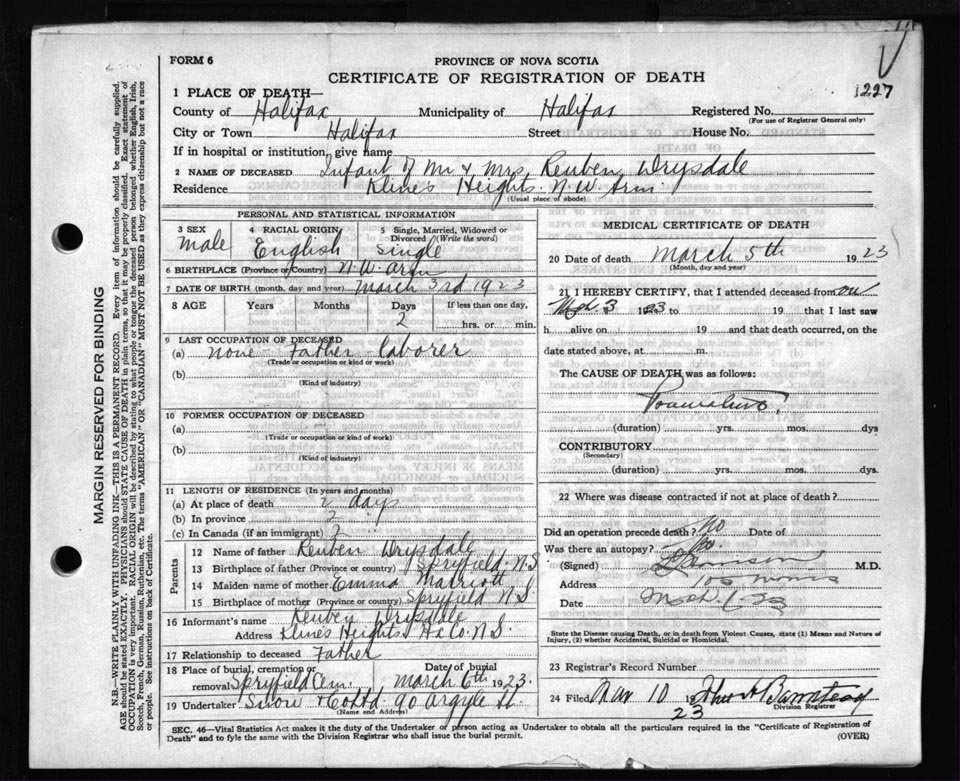 FORM 6
PROVINCE OF NOVA SCOTIA
CERTIFICATE OF REGISTRATION OF DEATH
1227
1 PLACE OF DEATH—
County of Halifax Municipality of Halifax Registered No.
(For use of Registrar General only)
City or Town Halifax Street House No.
If in hospital or institution, give name
2 NAME OF DECEASED Infant of Mr & Mrs Reuben Drysdale
Residence Klines Heights. N.W. Arm
(Usual place of abode)
PERSONAL AND STATISTICAL INFORMATION
3 SEX 4 RACIAL ORIGIN 5 Single, Married, Widowed or Divorced (Write the word)
male English Single
6 BIRTHPLACE (Province or Country) N.W. Arm
7 DATE OF BIRTH (month, day and year) March 3rd 1923
8 AGE Years Months Days If less than one day,
2 hrs. or min.
9 LAST OCCUPATION OF DECEASED
(a) none Father laborer
(Trade or occupation or kind or work)
(b)
(Kind of industry)
10 FORMER OCCUPATION OF DECEASED
(a)
(Trade or occupation or kind of work)
(b)
(Kind of industry)
11 LENGTH OF RESIDENCE (In years and months)
(a) At place of death 2 days
(b) In province 2
(c) In Canada (if an immigrant) 2
Parents
12 Name of father Reuben Drysdale
13 Birthplace of father (Province or country) Spryfield N.S.
14 Maiden name of mother Emma Marriott
15 Birthplace of mother (Province or country) Spryfield N.S.
16 Informant's name Reuben Drysdale
Address Klines Heights Ha Co. N.S.
17 Relationship to deceased Father
18 Place of burial, cremation or removal Spryfield Cem. Date of burial March 6th 1923.
19 Undertaker Snow & Co Ltd 90 Argyle St.
(Name and Address)
MEDICAL CERTIFICATE OF DEATH
20 Date of death March 5th 1923
(Month, day and year)
21 I HEREBY CERTIFY, that I attended deceased from on
Mch. 3 1923 to 19 that I last saw
h alive on 19 and that death occurred, on
date stated above, at m.
The CAUSE OF DEATH was as follows:
(duration) yrs. mos. dys
CONTRIBUTORY
(Secondary)
(duration) yrs. mos. dys.
22 Where was disease contracted if not at place of death?
Did an operation precede death? No Date of
Was there an autopsy? No.
(Signed) M.D.
Address 106 Morris
Date Mch.
State the Disease causing Death, or in death from Violent Causes, state (1) Means and Nature of Injury, (2) whether Accidental, Suicidal or Homicidal.
23 Registrar's Record Number
24 Filed Mar 10 1923
Division Registrar
SEC. 46—Vital Statistics Act makes it the duty of the Undertaker or person acting as Undertaker to obtain all the particulars required in the "Certificate of Registration of
Death" and to fyle the same with the Division Registrar who shall issue the burial permit.
(OVER)
MARGIN RESERVED FOR BINDING
N.B.—WRITE PLAINLY WITH UNFADING INK—THIS IS A PERMANENT RECORD. Every item of information should be carefully supplied.
AGE should be stated EXACTLY. PHYSICIANS should STATE CAUSE OF DEATH in plain terms, so that it may be properly classified. Exact statement of
OCCUPATION is very important. RACIAL ORIGIN will be described by stating to what people or tongue the deceased person belonged whether English, Irish,
Scotch, French, German, Russian, Ruthenian, etc. The terms "AMERICAN" OR "CANADIAN" MUST NOT BE USED as they express citizenship but not a race
or people. See instructions on back of Certificate.